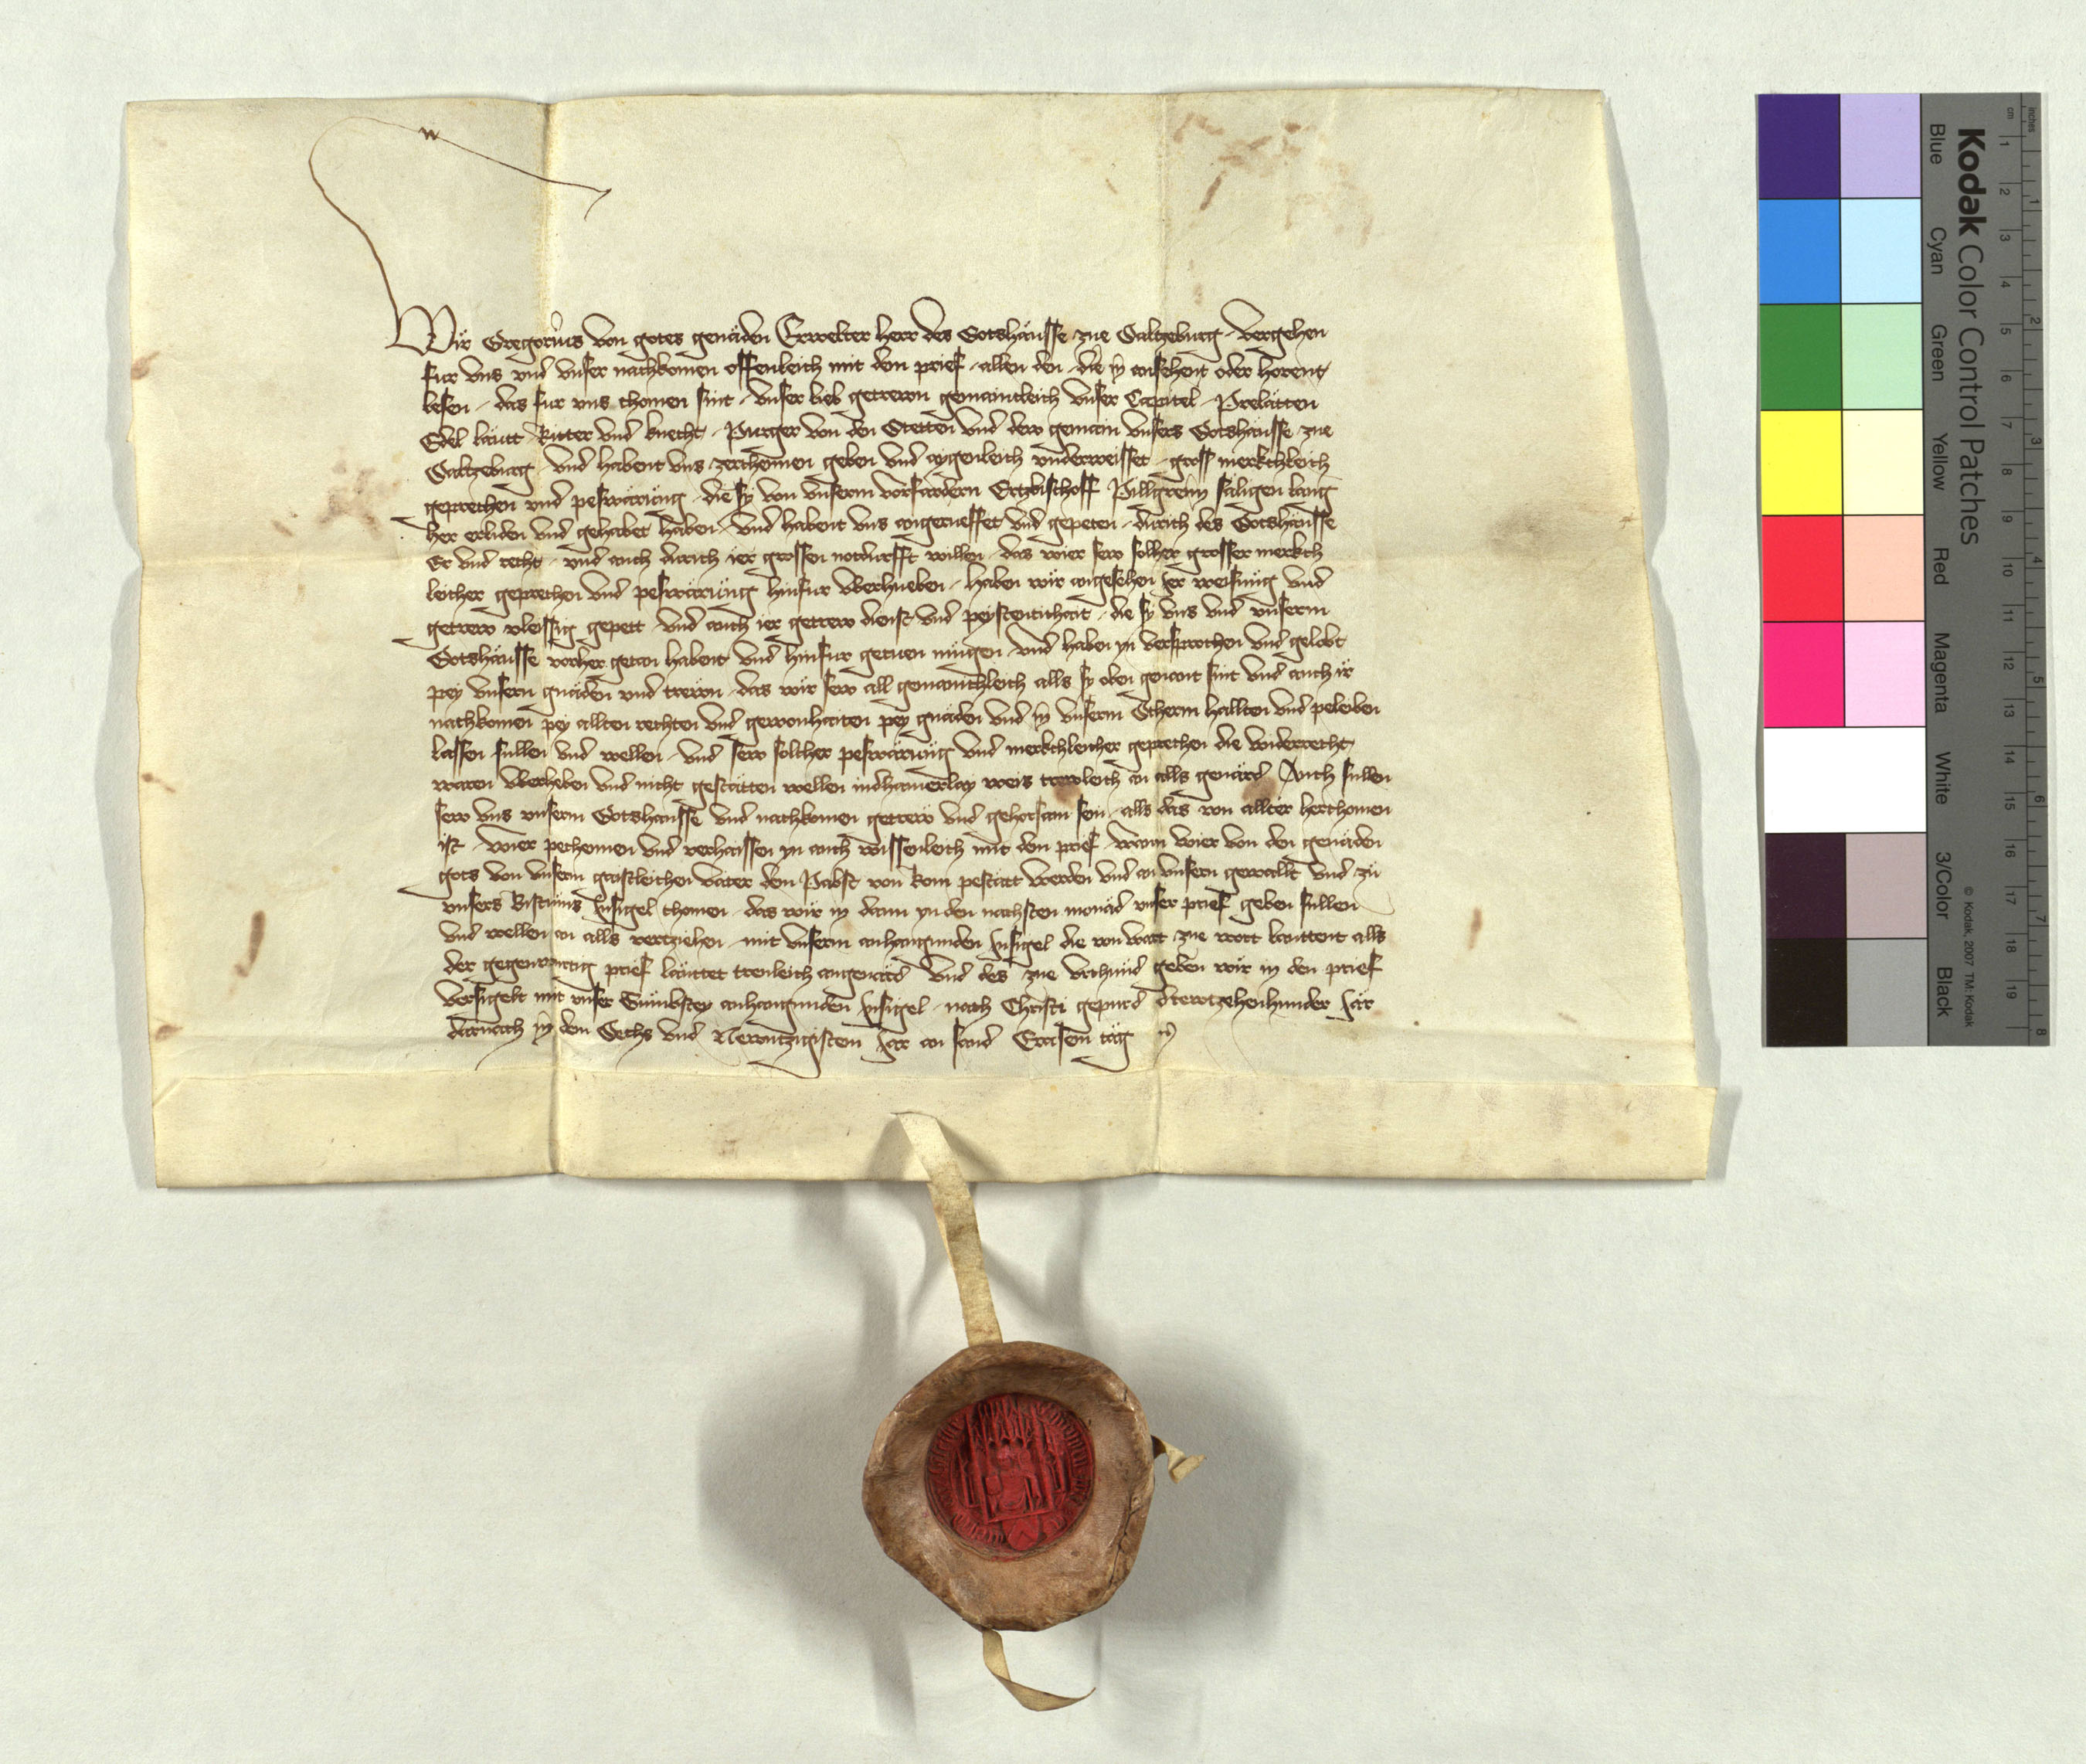 Wir Gregorius von gotes genaden Erwelter herr des Gotshausse zue Saltzburg vergehen
fur uns und unser nachkomen offenleich mit dem prief allen den die in ansehent oder horent
lesen das fur uns chomen sint unser lieb getrewn gemainkleich unser Capitel Prelatten
Edel laut Ritter und knecht Purger von den Stetten und dew gemain unsers Gotshausse zue
Saltzburg und habent uns zerchennen geben und aygenleich underweisset gross merkchleich
geprechen und peswarung die sy von unserm vorfardern Ertzbischoff Pillgreim saligen lang
her erliden und gehabet haben und habent uns angerueffet und gepeten durich des Gotshausse
Er und recht und auch durich ier grossen notdurfft willen das wier sew solher grosser merkch
leicher geprechen und peswarung hinfur uberhueben haben wir angesehen ier weisung und
getrew vleissig gepett und auch ier getrew dienst und peystentichait die sy uns und unserm
Gotshausse vorher getan habent und hinfur getuen mugen und haben yn versprochen und gelobt
pey unsern gnaden und trewn das wir sew all gemainchleich alls sy oben genant sint und auch ir
nachkomen pey allten rechten und gewonhaiten pey gnaden und in unserm Scherm hallten und peleiben
lassen sullen und wellen und sew solcher peswarung und merkchleicher geprechen die widerrecht
waren uberheben und nicht gestatten wellen indhainerlay weis trewleich an alls genard Auch sullen
sew uns unserm Gotshausse und nachkomen getrew und gehorsam sein alls das von allter herchomen
ist wier pechennen und verhaissen yn auch wissenleich mit dem prief wann wier von den genaden
gots von unserm gaistleichen vater dem Pabst von Rom pestatt werden und an unsern gewallt und zu
unsers Bistums Insigel chomen das wir in dann yn den nachsten monad unser prief geben sullen
und wellen an alls vertziehen mit unserm anhangunden Insigel die von wart zue wort lauttent alls
der gegenwurtig prief lauttet treuleich angenard Und des zue Urchund geben wir in den prief
versigelt mit unser anhangunden Insigel nach Christi gepurd drewtzehenhunder Jar
darnach in dem Sechs und Newntzigistem Jar an sand Erasem tag
Kodak Color Control Patches
Blue Cyan Green Yellow Red Magenta White 3/Color Black
© Kodak, 2007 TM: Kodak
cm 1 2 3 4 5 6 7 8 9 10 11 12 13 14 15 16 17 18 19
inches 1 2 3 4 5 6 7 8